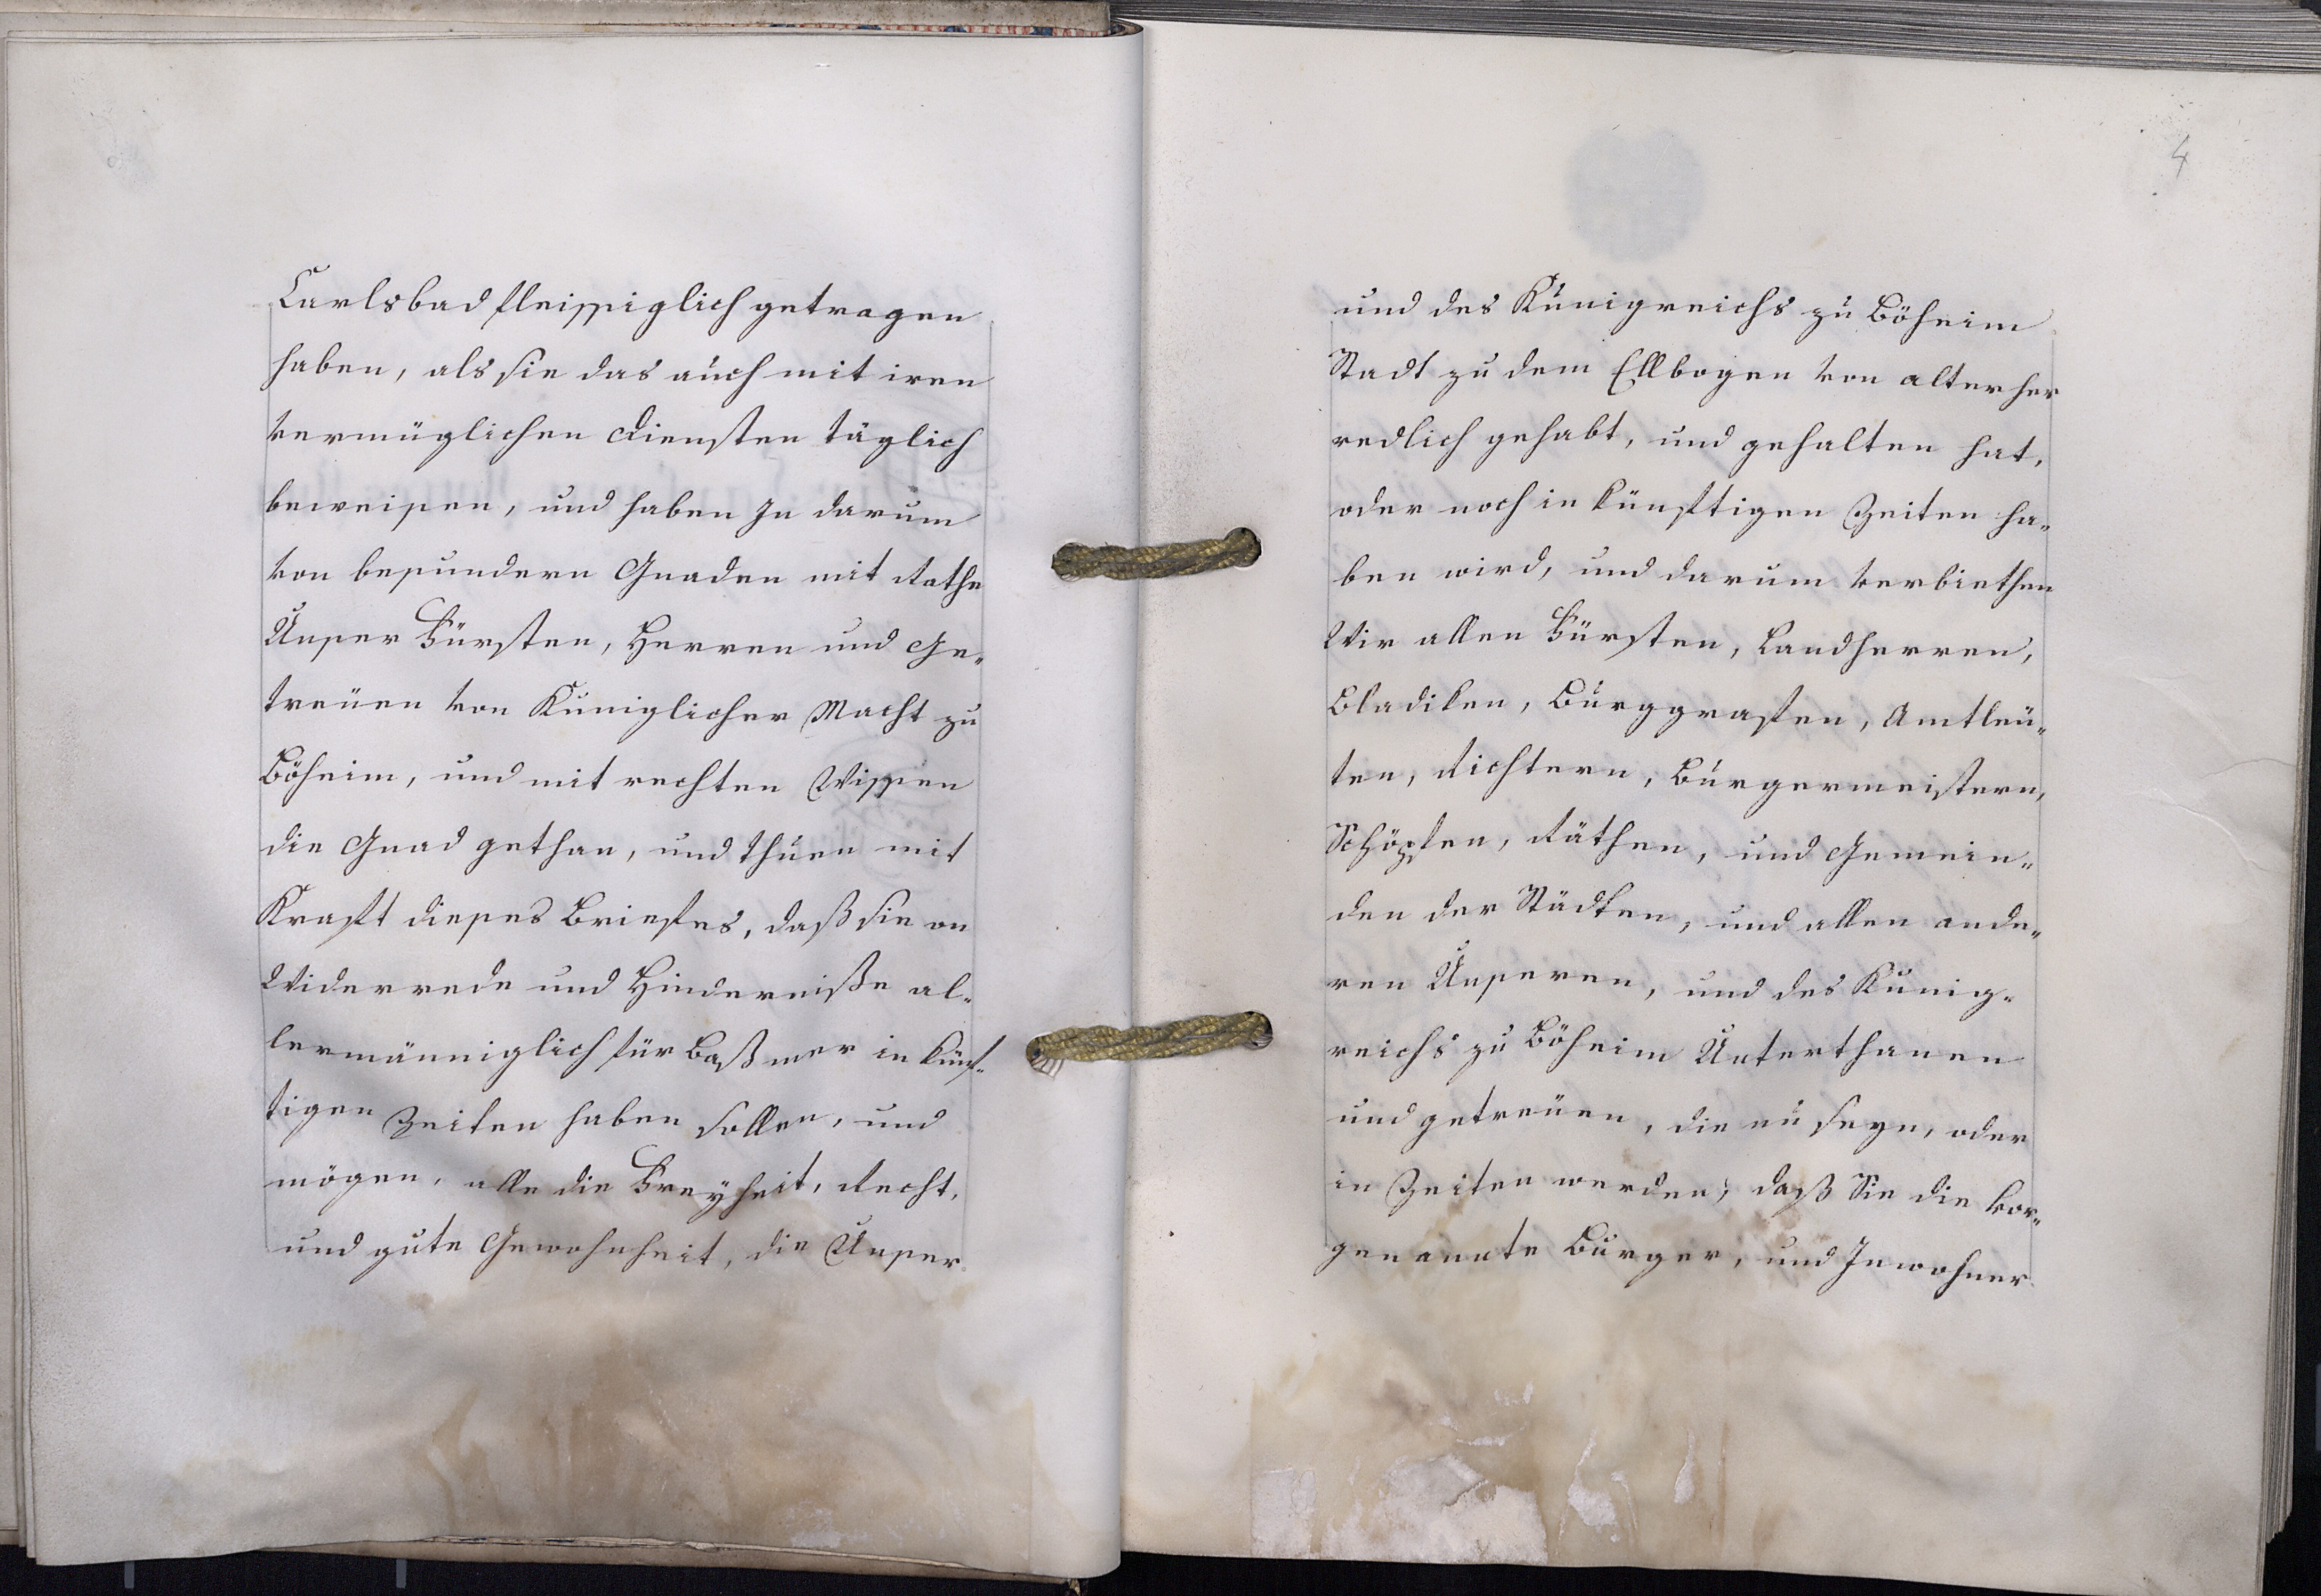 Carlsbad fleissiglich getragen
haben, als sie das auch mit iren
vermüglichen diensten täglich
beweisen, und haben In darum
von besundern Gnaden mit Rathe
Unser Fürsten, Herren und Ge„
treüen von Kuniglicher Macht zu
Böheim, und mit rechten Wissen
die Gnad gethan, und thuen mit
Kraft dieses Briefes, daß sie on
Widerrede und Hinderniße al„
lermänniglich für baß mer in künf„
tigen Zeiten haben sollen, und
mögen, alle die Freyheit, Recht,
und gute Gewohnheit, die Unser
4
und des Kunigreichs zu Böheim
Stadt zu dem Ellbogen von alter her
redlich gehabt, und gehalten hat,
oder noch in künftigen Zeiten ha„
ben wird, und darum verbiethen
Wir allen Fürsten, Landherren,
Wladiken, Burggrafen, Amtleü„
ten, Richtern, Burgermeistern,
Schöpfen, Räthen, und Gemein„
den der Städten, und allen ande„
ren Unseren, und des Kunig„
reichs zu Böheim Unterthanen
und getreüen, die nu seyn, oder
in Zeiten werden, daß Sie die vor„
genannte Burger, und Inwohner